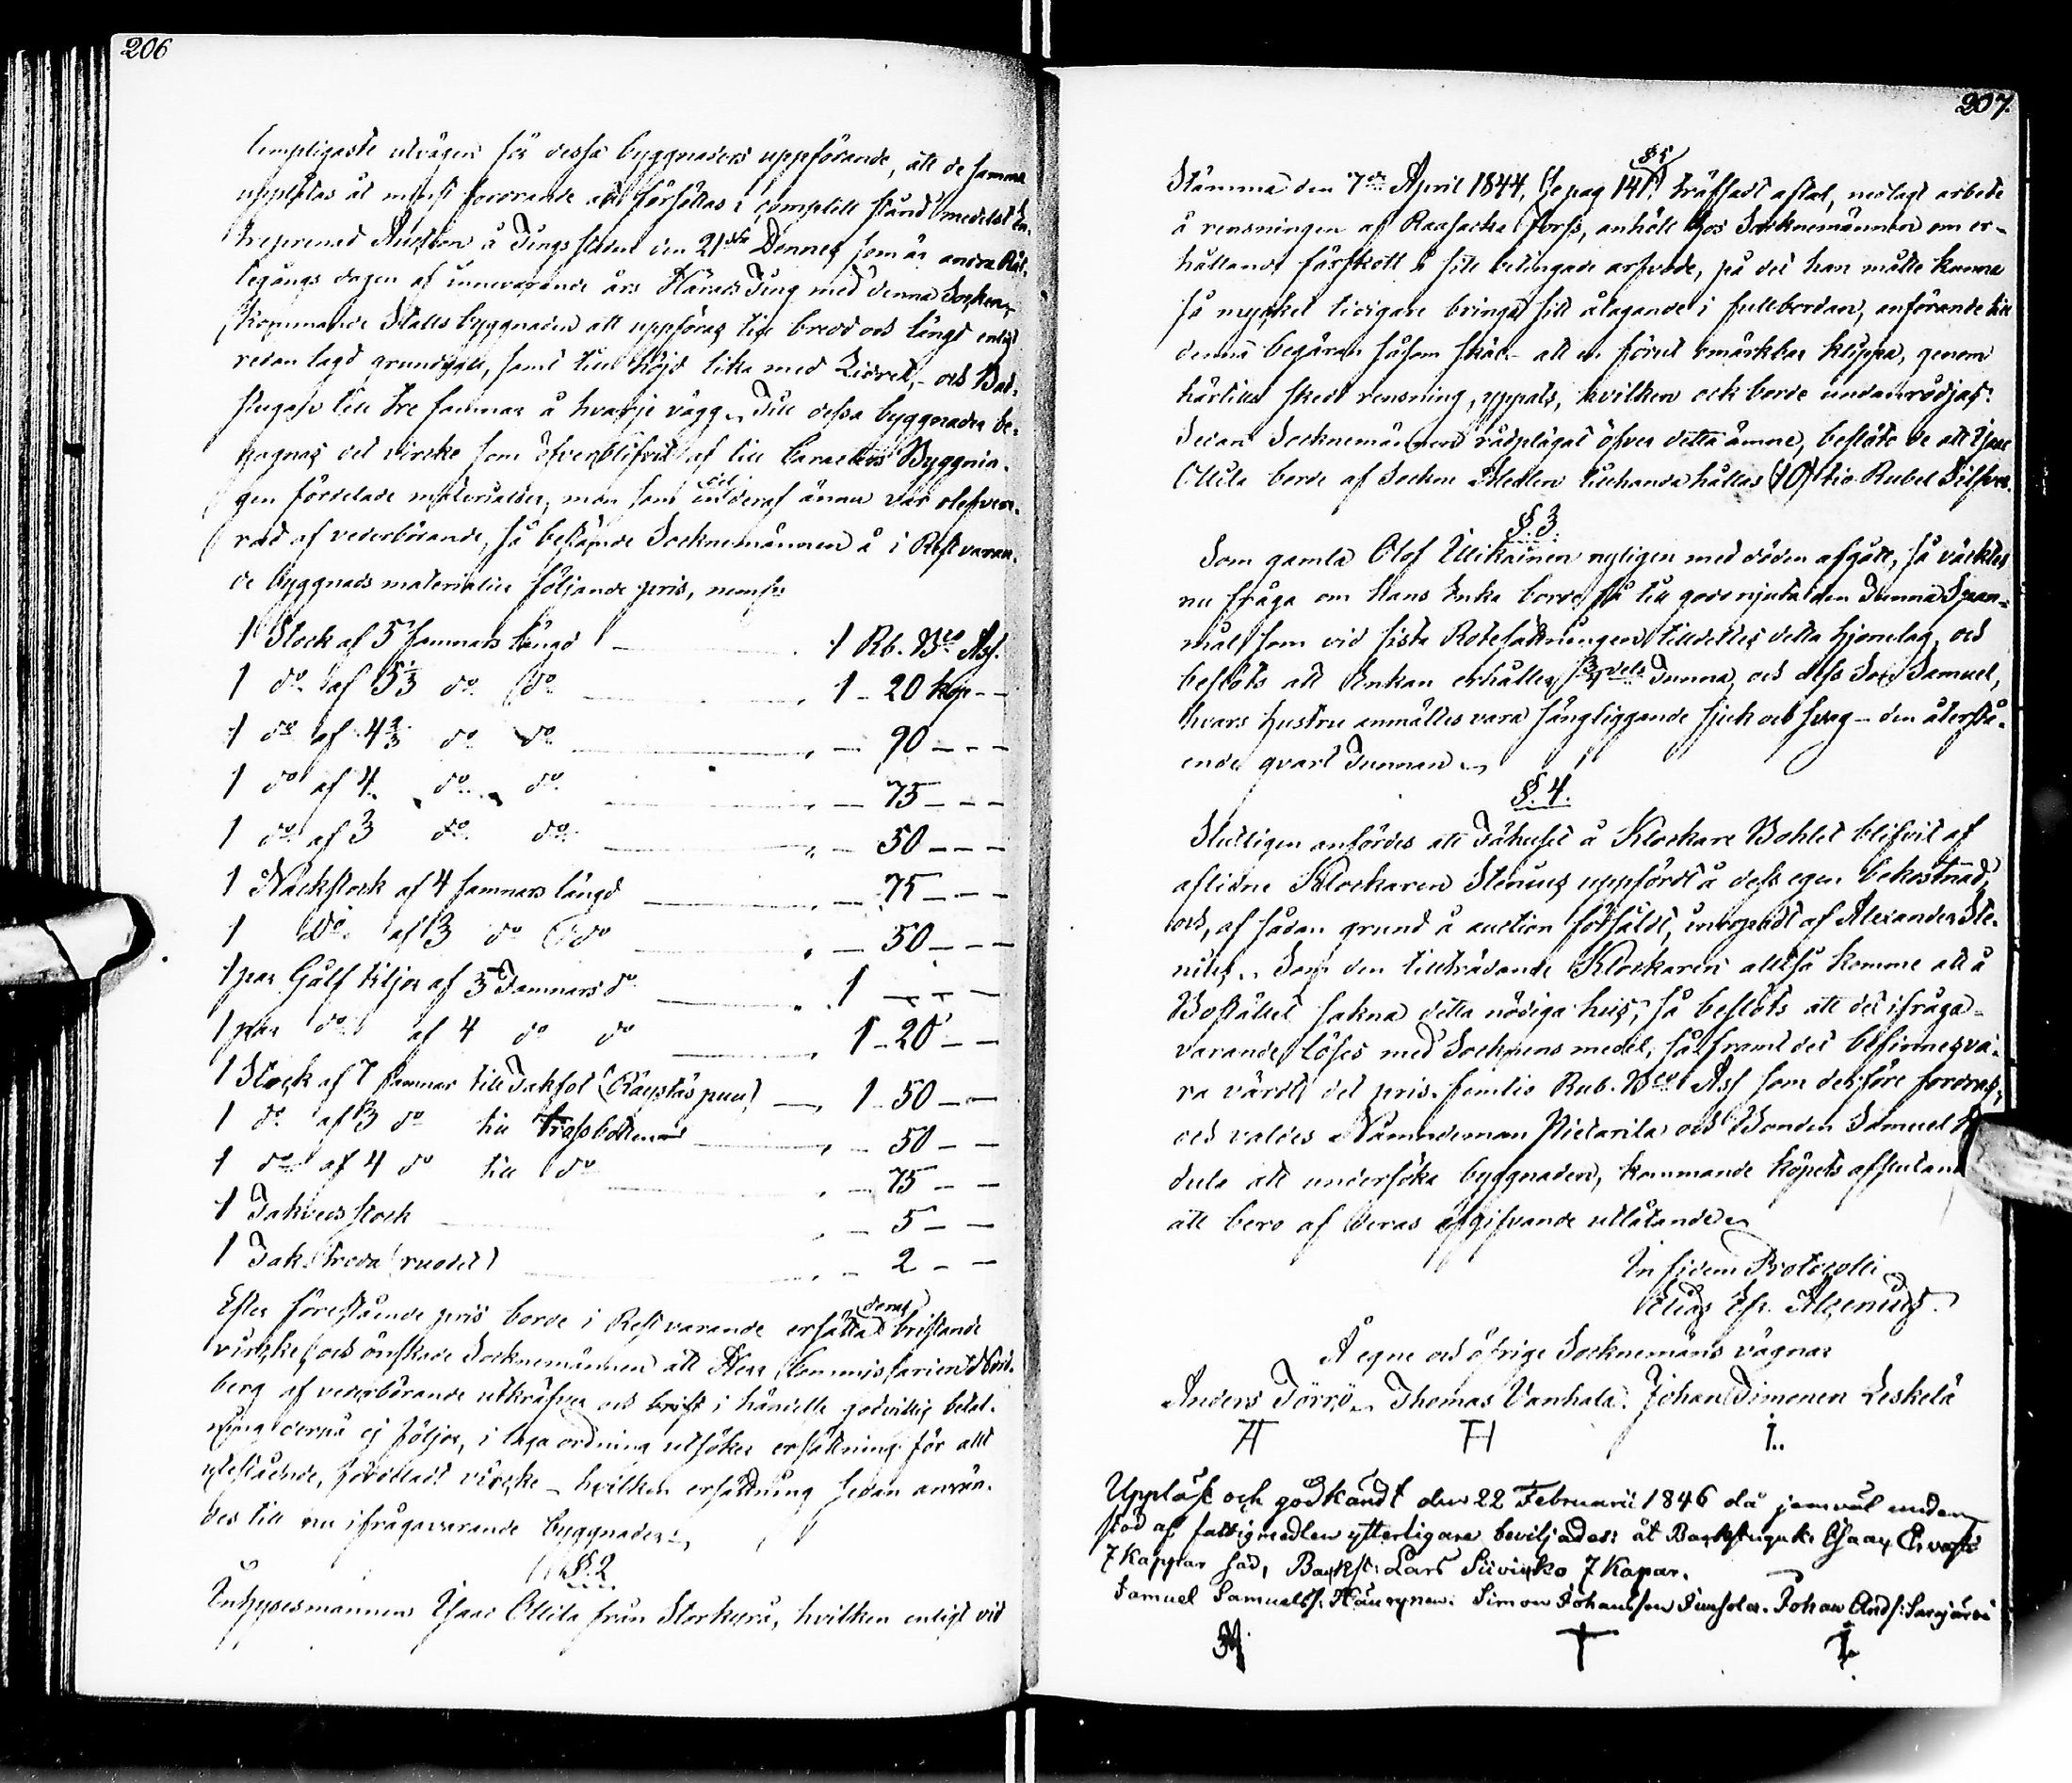 206
lempligaste utvägen för dessa byggnaders uppförande, att de samma
upplåtas åt minst fordrande att försättas i complett stånd medelst En-
treprenad Auction å Tings stället den 21sta Dennes som är andra Rät-
tegångs dagen af innevarande års Härads Ting med denna Socken,
kommande Stalls byggnaden att uppföras till bredd och längd enligt
redan lagd grundval, samt till höjd lika med Lidret, och Bad-
stugan till tre famnar å hvarje vägg. Till dessa byggnader be-
gagnas det virke som öfverblifvit af till Caracters Byggnin-
gen fördelade materialier, men som en del deraf ännu var olefvere-
rad af vederbörande, så bestämde Socknemännen å i Rest varan-
de byggnads materialier följande pris, neml:n
1 Stock af 5 famnars längd 1 Rb. Bco Ass.
1 do af 5 1/3 do do 1 - 20 kop - -
1 do af 4 2/3 do do - 90 - - -
1 do af 4 do do - 75 - - -
1 do af 3 do do - 50 - - -
1 Nackstock af 4 famnars längd - 75 - - -
1 do af 3 do do - 50 - - -
1 par Gålf tiljor af 3 Famnars do 1 - - -
1 par do af 4 do do 1 - 20 - -
1 Stock af 7 famnar till Takfot (Räystäs puu) 1 - 50 - -
1 do af 3 do till trossbottenar - 50 - -
1 do af 4 do till do - 75 - -
1 Takveds stock - 5 - -
1 Tak troda (ruodet) - 2 - -
Efter förestående pris borde i Rest varande ersätta deras bristande
virke, och önskade Socknemännen att Herr Commissarien Nord-
berg af vederbörande utkräfver och der i händelse godvillig betal-
ning derpå ej följer, i laga ordning utsöker ersättning för allt
utestående, fördeladt virke - hvilken ersättning sedan använ-
des till nu ifrågavarande byggnader.
§. 2
Inhysesmannen Isaac Ollila från Storkyrå, hvilken enligt vid
207.
§ 5
Stämma den 7de April 1844, (se pag 141.) träffadt aftal, nedlagt arbete
å rensningen af Raasakka Forss, anhöll hos Socknemännen om er-
hållande förskott å sitt betingade arfvode, på det han måtte kunna
så mycket tidigare bringa sitt åtagande i fullbordan, anförande till
denna begäran såsom skäl - att en förut omärkbar klippa, genom
härtills skedd rensning, uppats, hvilken ock borde undanrödjas.
Sedan Socknemännen rådplägat öfver detta ämne, beslöto de att Isac
Ollila borde af Socken Medlen tillhanda hållas (10) tio Rubel Silfver.
§ 3.
Som gamla Olof Ulikainen nyligen med döden afgått, så väcktes
nu fråga om Hans Enka borde få till godo njuta den Tunna Span-
mål, som vid sista Rotesättningen tilldeltes detta hjonelag, och
beslöts att Enkan erhåller 3/4dels Tunna, och dess Son Samuel,
hvars hustru anmältes vara sängliggande sjuk och svag - den återstå-
ende qvart Tunnan.
§. 4.
Slutligen anfördes att Fähuset å Klockare Bohlet blifvit af
aflidne Klockaren Stenius uppfördt å dess egen bekostnad,
och, af sådan grund å auction försåldt, inropadt af Alexander Ste-
nius. Som den tillträdande Klockaren alltså komme att å
Bostället sakna detta nödiga hus, så beslöts att det ifråga-
varande löses med Socknens medel, såframt det befinnes va-
ra värdt det pris femtio Rub. Bco Ass som derföre fordras,
och valdes Nämndeman Pietarila och Bonden Samuel
dula att undersöka byggnaden, kommande köpets afslutan
att bero af deras afgifvande utlåtande.
In fidem Protocolli
Elias Ef. Alcenius.
Å egne och öfrige Socknemäns vägnar
Anders Törrö. Thomas Vanhala. Johan Timonen Leskelä
Uppläst och godkändt den 22 Februarii 1846 då jemväl under
stöd af fattigmedlen ytterligare beviljades: åt Backstuguk: Esaax
7 Kappar säd, Backst: Lars Siivikko 7 Kapar.
Samuel Samuelss. Häurynen. Simon Johansson Juusola. Johan Ands: Sarajärvi